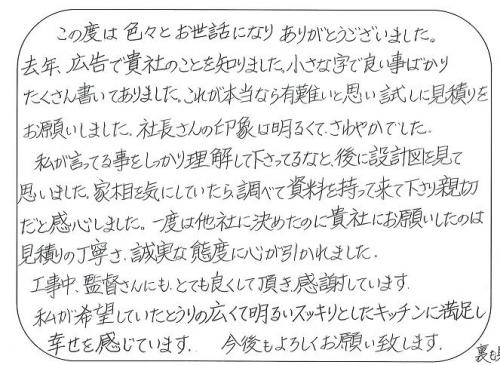 この度は色々とお世話になりありがとうございました。
去年、広告で貴社のことを知りました。小さな字で良い事ばかり
たくさん書いてありました。これが本当なら有難いと思い試しに見積りを
お願いしました。社長さんの印象は明るくて、さわやかでした。
私が言ってる事をしっかり理解して下さってるなと、後に設計図を見て
思いました。家相を気にしていたら、調べて資料を持って来て下さり親切
だと感心しました。一度は他社に決めたのに貴社にお願いしたのは
見積りの丁寧さ、誠実な態度に心が引かれました。
工事中、監督さんにも、とても良くして頂き、感謝しています。
私が希望していたとうりの広くて明るいスッキリとしたキッチンに満足し
幸せを感じています。 今後もよろしくお願い致します。
裏も